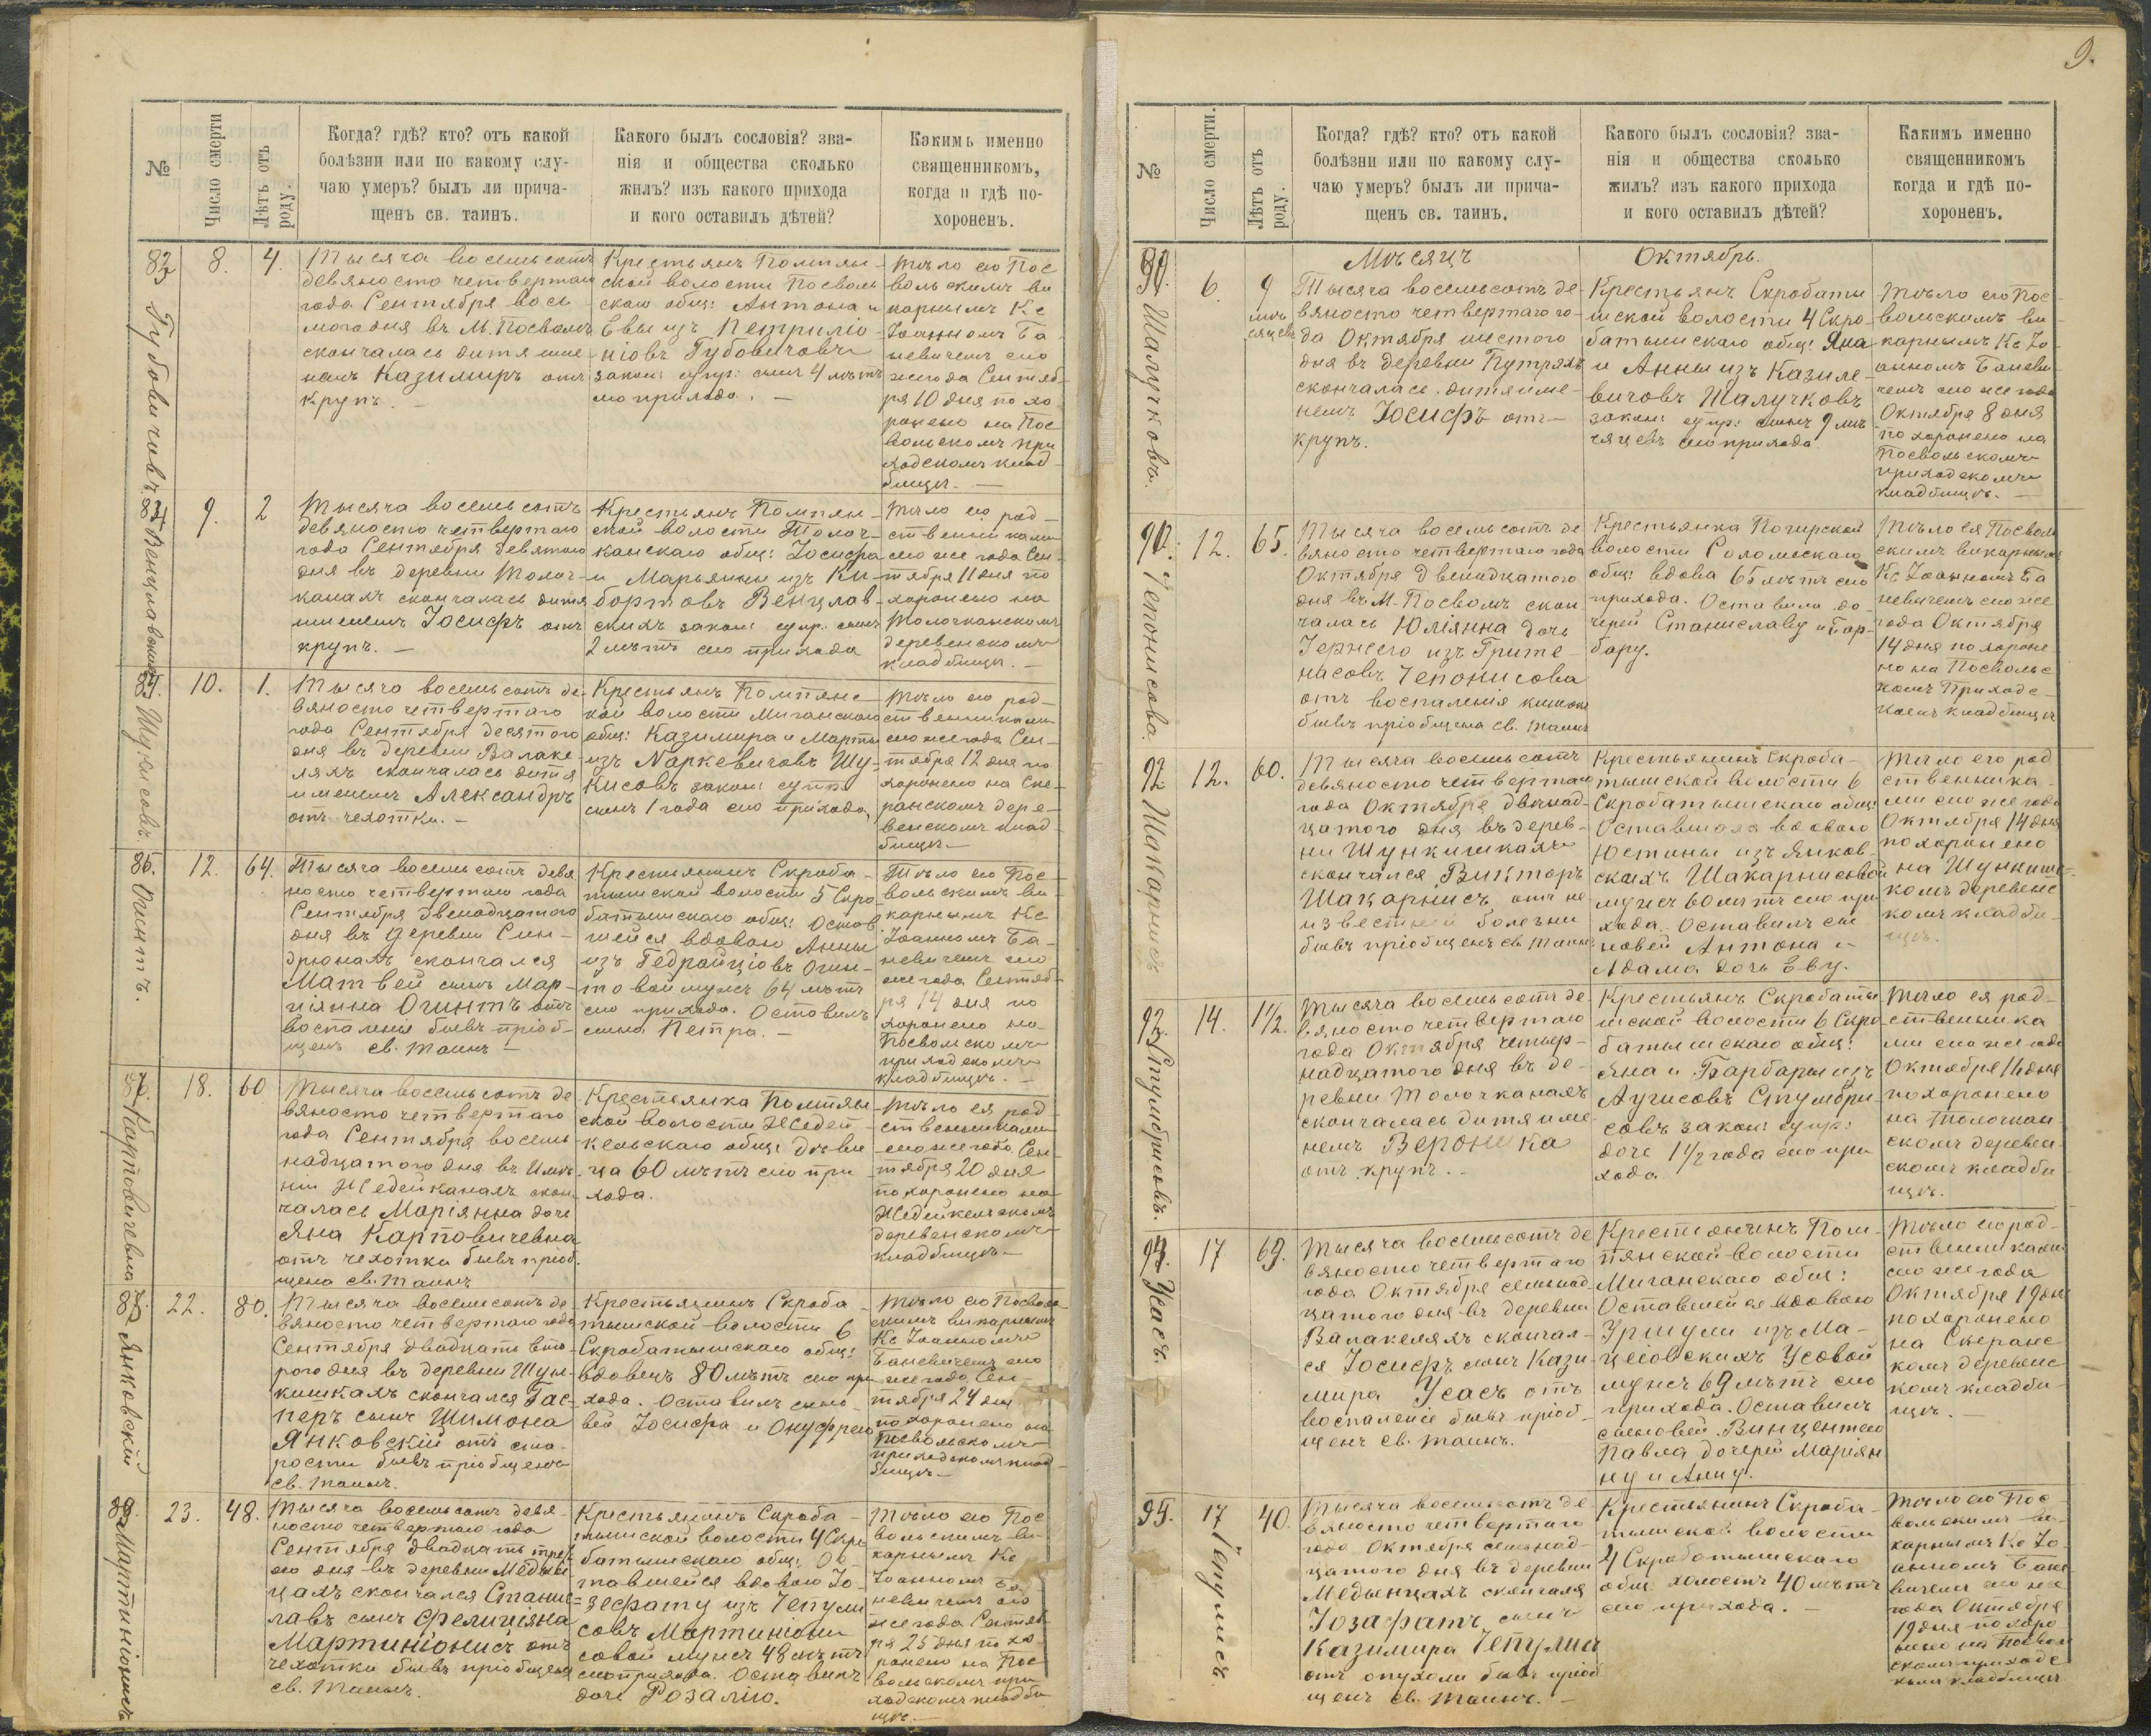 9.
№
Число смерти
Лѣтъ отъ роду.
Когда? гдѣ? кто? отъ какой
болѣзни или по какому слу-
чаю умеръ? былъ ли прича-
щенъ св. таинъ.
Какого былъ сословія? зва-
нія и общества сколько
жилъ? изъ какого прихода
и кого оставилъ дѣтей?
Какимъ именно
священникомъ,
когда и гдѣ по-
хороненъ.
Губовичовъ.
8.
4.
Тысяча восемьсотъ
девяносто четвертаго
года Сентября вось
могодня въ М. Посволѣ
скончалась дитя име
немъ Казимиръ отъ
крупъ. —
Крестьянъ Помпян-
ской волости Посволь
скаго общ: Антона и
Евы изъ Петрилio-
ніовъ Губовичовъ
закон: супр: сынъ 4 лѣтъ
сего прихода. —
Тѣло его Пос
вольскимъ ви
карнымъ Кс
Іоанномъ Ба
невичемъ сего
жегода Сентяб-
ря 10 дня по хо
ронено на Пос
вольскомъ при
ходскомъ клад-
бищѣ. —
84
9.
2
Тысяча восемьсотъ
девяносто четвертаго
года Сентября девятого
дня въ деревни Толоч-
канахъ скончалась дитя
именемъ Іосифъ отъ
крупъ. —
Крестьянъ Помпян-
ской волости Толоч-
канскаго общ: Іосифа
и Марьянны изъ Ки-
бортовъ Венцлав-
скихъ закон: супр. сынъ
2 лѣтъ сего прихода
Тѣло его род-
ственниками
сего же года Сен-
тября 11 дня по
хоронено на
Толочканскомъ
деревенскомъ
кладбищѣ. —
Шукисовъ.
10.
1.
Тысяча восемьсотъ де-
вяносто четвертаго
года Сентября десятого
дня въ деревни Валаке-
ляхъ скончалась дитя
именемъ Александръ
отъ чехотки. —
Крестьянъ Помпянс-
кой волости Миганскаго
общ: Казимира и Марты
изъ Наркевичовъ Шу-
кисовъ закон: супр
сынъ 1 года сего прихода
Тѣло его род-
ственниками
сего же года Сен-
тября 12 дня по
хоронено на Ске-
ранскомъ дере-
венскомъ клад-
бищѣ —
Огинтъ.
12.
64.
Тысяча восемьсотъ девя
носто четвертаго года
Сентября двенадцатого
дня въ деревни Син-
дрюнахъ скончался
Матвей сынъ Мар-
ціянна Огинтъ отъ
воспаленья бывъ пріоб-
щенъ св. таинъ —
Крестьянинъ Скроба-
тышской волости 5 Скро-
батышскаго общ: Остав
шейся вдовою Анны
изъ Гедройціовъ Огин-
товой мужъ 64 лѣтъ
сего прихода. Оставилъ
сына Петра. —
Тѣло его Пос
вольскимъ ви-
карнымъ Кс
Іоанномъ Ба-
невичемъ сего
же года Сентяб-
ря 14 дня по
хоронено на
Посвольскомъ
приходскомъ
кладбищѣ. —
Карповичевна
18.
60
Тысяча восемьсотъ де
вяносто четвертаго
года Сентября восемь
надцатого дня въ имѣ-
ніи Жедейканахъ скон-
чалась Маріянна дочь
Яна Карповичевна
отъ чехотки бывъ пріоб-
щена св. таинъ
Крестьянка Помпян-
ской волости Жедей-
кельскаго общ: Дѣви
ца 60 лѣтъ сего при
хода.
Тѣло ея род-
ственниками
сего же года Сен-
тября 20 дня
похоронено на
Жедейкельскомъ
деревенскомъ
кладбищѣ. —
Янковскій
22.
80.
Тысяча восемьсотъ де-
вяносто четвертаго года
Сентября двадцать вто-
рого дня въ деревни Шун-
кишкахъ скончался Гас-
перъ сынъ Шимона
Янковскій отъ ста-
рости бывъ пріобщенъ
св. таинъ.
Крестьянинъ Скроба-
тышской волости 6
Скробатышскаго общ:
вдовецъ 80 лѣтъ сего при
хода. Оставилъ сыно
вей Іосифа и Онуфрего
Тѣло его Посволь
скимъ викарнымъ
Кс Іоанномъ
Баневичемъ сего
же года Сен-
тября 24 дня
похоронено на
Посвольскомъ
приходскомъ клад-
бищѣ —
Мартиніонисъ
23.
48.
Тысяча восемьсотъ девя-
носто четвертаго года
Сентября двадцать треть
его дня въ деревни Медын
цахъ скончался Станис=
лавъ сынъ Фелиціяна
Мартиніонисъ отъ
чехотки бывъ пріобщенъ
св. таинъ.
Крестьянинъ Скроба-
тышской волости 4 Скро
батышскаго общ: Ос-
тавшейся вдовою Іо-
зефату изъ Чепули
совъ Мартиніони
совой мужъ 48 лѣтъ
сего прихода. Оставилъ
дочь Розалію.
Тѣло его Пос
вольскимъ ви-
карнымъ Кс
Іоанномъ Ба
невичемъ сего
же года Сентяб
ря 25 дня по хо
ронено на Пос
вольскомъ при
ходскомъ кладби
щѣ. —
№
Число смерти.
Лѣтъ отъ роду.
Когда? гдѣ? кто? отъ какой
болѣзни или по какому слу-
чаю умеръ? былъ ли прича-
щенъ св. таинъ.
Какого былъ сословія? зва-
нія и общества сколько
жилъ? изъ какого прихода
и кого оставилъ дѣтей?
Какимъ именно
священникомъ
когда и гдѣ по-
хороненъ.
Мѣсяцъ Октябрь.
Шалучковъ.
6.
9
мѣ
сяцевъ
Тысяча восемьсотъ де-
вяносто четвертаго го-
да Октября шестого
дня въ деревни Путряхъ
скончалась дитя име-
немъ Іосифъ отъ
крупъ.
Крестьянъ Скробаты
шской волости 4 Скро-
батышскаго общ: Яна
и Анны изъ Казиле-
вичовъ Шалучковъ
закон: супр: сынъ 9 мѣ
сяцевъ сего прихода
Тѣло его Пос-
вольскимъ ви-
карнымъ Кс Іо-
анномъ Баневи
чемъ сего же года
Октября 8 дня
похоронено на
Посвольскомъ
приходскомъ
кладбищѣ. —
Чепонисова.
12.
65.
Тысяча восемьсотъ де
вяносто четвертаго года
Октября двенадцатого
дня въ М. Посволѣ скон
чалась Юліянна дочь
Іержего изъ Грите-
насовъ Чепонисова
отъ воспаленія кишокъ
бывъ пріобщена св. таинъ
Крестьянка Погирской
волости Соломескаго
общ: вдова 65 лѣтъ сего
прихода. Оставила до-
черей Станиславу и Бар-
бару.
Тѣло ея Посволь
скимъ викарнымъ
Кс Іоанномъ Ба
невичемъ сего же
года Октября
14 дня похороне
но на Посвольс
комъ Приходс-
комъ кладбищѣ
92.
Шакарнисъ
12.
60.
Тысяча восемьсотъ
девяносто четвертаго
года Октября двенад-
цатого дня въ дерев-
ни Шункишкахъ
скончался Викторъ
Шакарнисъ отъ не
известной болезни
бывъ пріобщенъ св. таинъ
Крестьянинъ Скроба-
тышской волости 6
Скробатышскаго общ:
Оставшаяя вдовою
Юстины изъ Янков-
скихъ Шакарнисовой
мужъ 60 лѣтъ сего при
хода. Оставилъ сы
новей Антона и
Адама дочь Еву.
Тѣло его род
ственника-
ми сего же года
Октября 14 дня
похоронено
на Шункишс-
комъ деревенс
комъ кладби-
щѣ.
Стумбрисовъ.
14.
1½.
Тысяча восемьсотъ де
вяносто четвертаго
года Октября четыр-
надцатого дня въ де-
ревни Толочканахъ
скончалась дитя име
немъ Вероника
отъ крупъ. —
Крестьянъ Скробаты
шской волости 6 Скро
батышскаго общ:
Яна и Барбары изъ
Аугисовъ Стумбри
совъ закон: супр:
дочь 1½ года сего при
хода.
Тѣло ея род-
ственника
ми сего же года
Октября 16 дня
похоронено
на Толочкан
скомъ деревен-
скомъ кладби
щѣ.
Усасъ.
17
69.
Тысяча восемьсотъ де
вяносто четвертаго
года Октября семьнад
цатого дня въ деревни
Валакеляхъ скончал-
ся Іосифъ сынъ Кази
мира Усасъ отъ
воспаленіе бывъ пріоб-
щенъ св. таинъ.
Крестьянинъ Пом-
пянской волости
Миганскаго общ:
Оставшейся вдовою
Уршули изъ Ма-
цеіовскихъ Усовой
мужъ 69 лѣтъ сего
прихода. Оставилъ
сыновей Винцентего
Павла дочерей Маріян
ну и Анну.
Тѣло его род-
ственниками
сего же года
Октября 19 дня
похоронено
на Скеранс
комъ деревенс
комъ кладби-
щѣ. —
95.
Чепулисъ.
17
40.
Тысяча восемьсотъ де
вяносто четвертаго
года Октября семьнад-
цатого дня въ деревни
Медынцахъ скончался
Іозафатъ сынъ
Казимира Чепулисъ
отъ опухоли бывъ пріоб
щенъ св. таинъ. —
Крестьянинъ Скроба-
тышской волости
4 Скробатышскаго
общ: холостъ 40 лѣтъ
сего прихода. —
Тѣло его Пос-
вольскимъ ви-
карнымъ Кс Іо-
анномъ Бане
вичемъ сего же
года Октября
19 дня похоро
нено на Посволь
скомъ приходс
комъ кладбищѣ